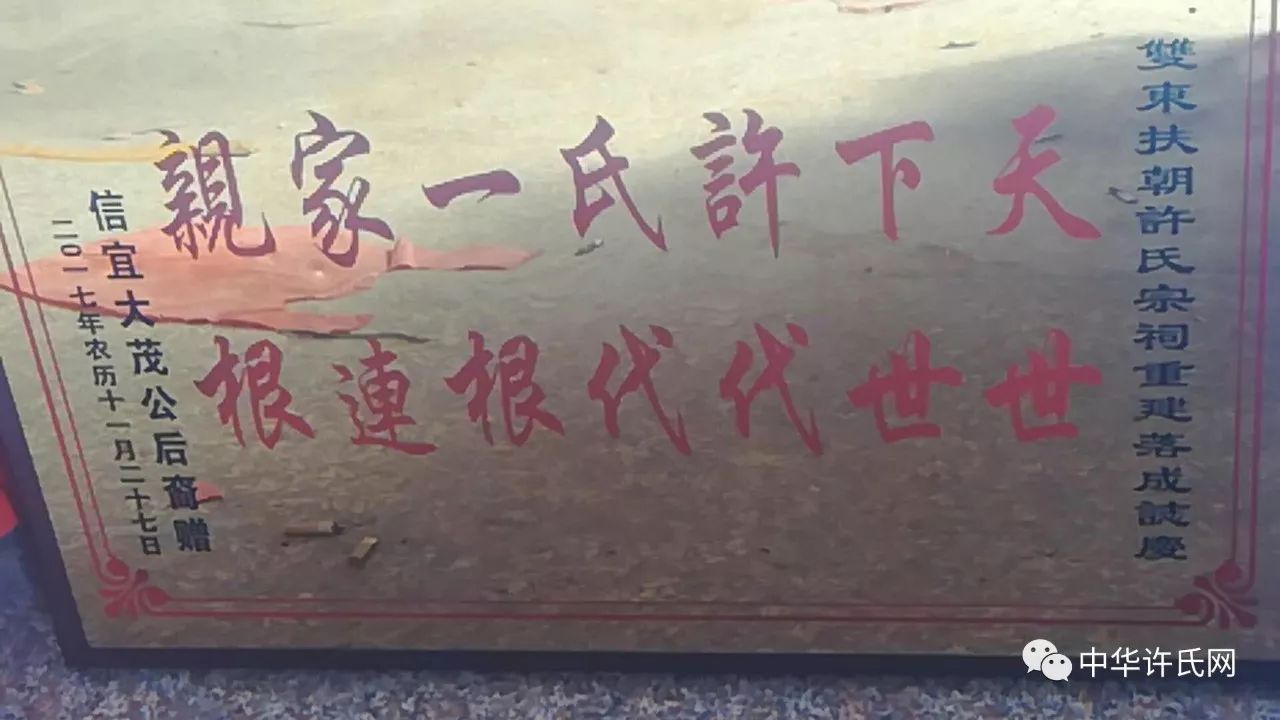 雙東扶朝許氏宗祠重建落成誌慶
天下許氏一家親
世世代代根連根
信宜大茂公后裔赠
二〇一七年农历十一月二十七日
中华许氏网